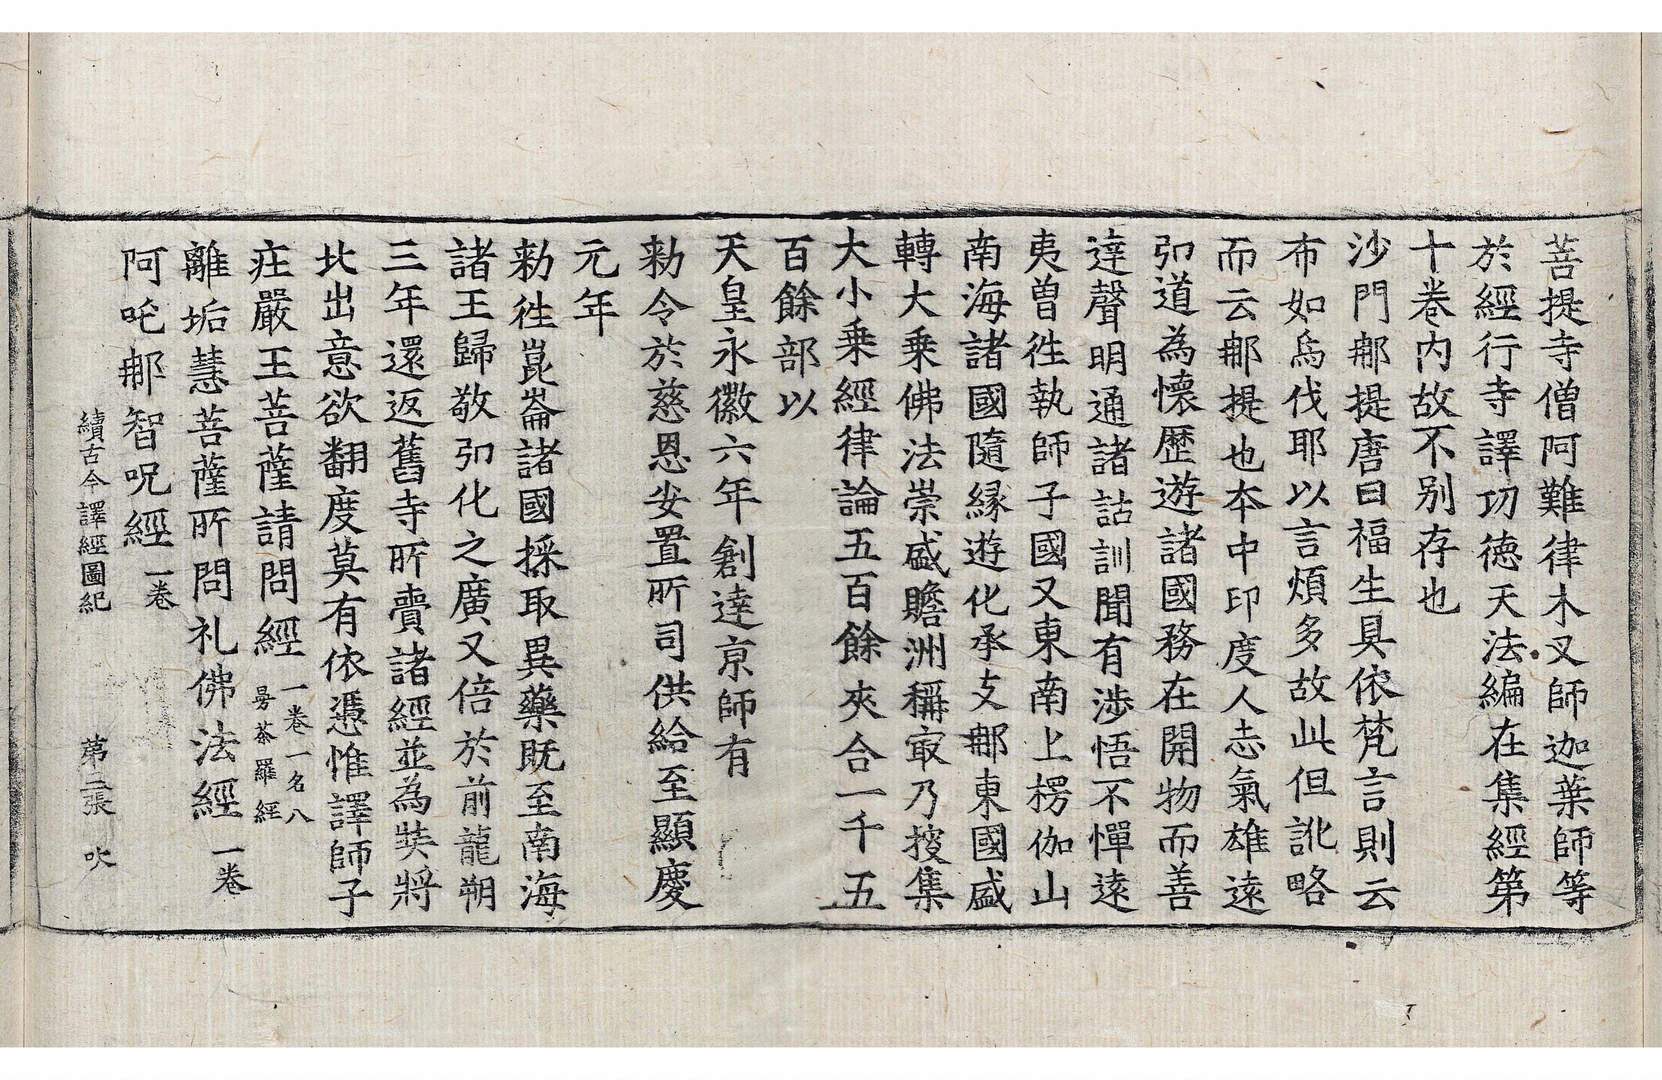 菩提寺僧阿難律木叉師迦葉師等
於經行寺譯功德天法編在集經第
十卷內故不別存也
沙門那提唐曰福生具依梵言則云
布如烏伐耶以言煩多故此但訛略
而云那提也本中印度人志氣雄遠
弘道為懷歷遊諸國務在開物而善
達聲明通諸詁訓聞有涉悟不憚遠
夷曾往執師子國又東南上楞伽山
南海諸國隨緣遊化承支那東國盛
轉大乘佛法崇盛贍洲稱寂乃搜集
大小乘經律論五百餘夾合一千五
百餘部以
天皇永徽六年創達京師有
勑令於慈恩安置所司供給至顯慶
元年
勑往崑崙諸國採取異藥既至南海
諸王歸敬弘化之廣又倍於前龍朔
三年還返舊寺所賷諸經並為奘將
北出意欲翻度莫有依憑惟譯師子
莊嚴王菩薩請問經 一卷一名八曼茶羅經
離垢慧菩薩所問礼佛法經 一卷
阿吒那智呪經 一卷
續古今譯經圖紀 第二張 吹